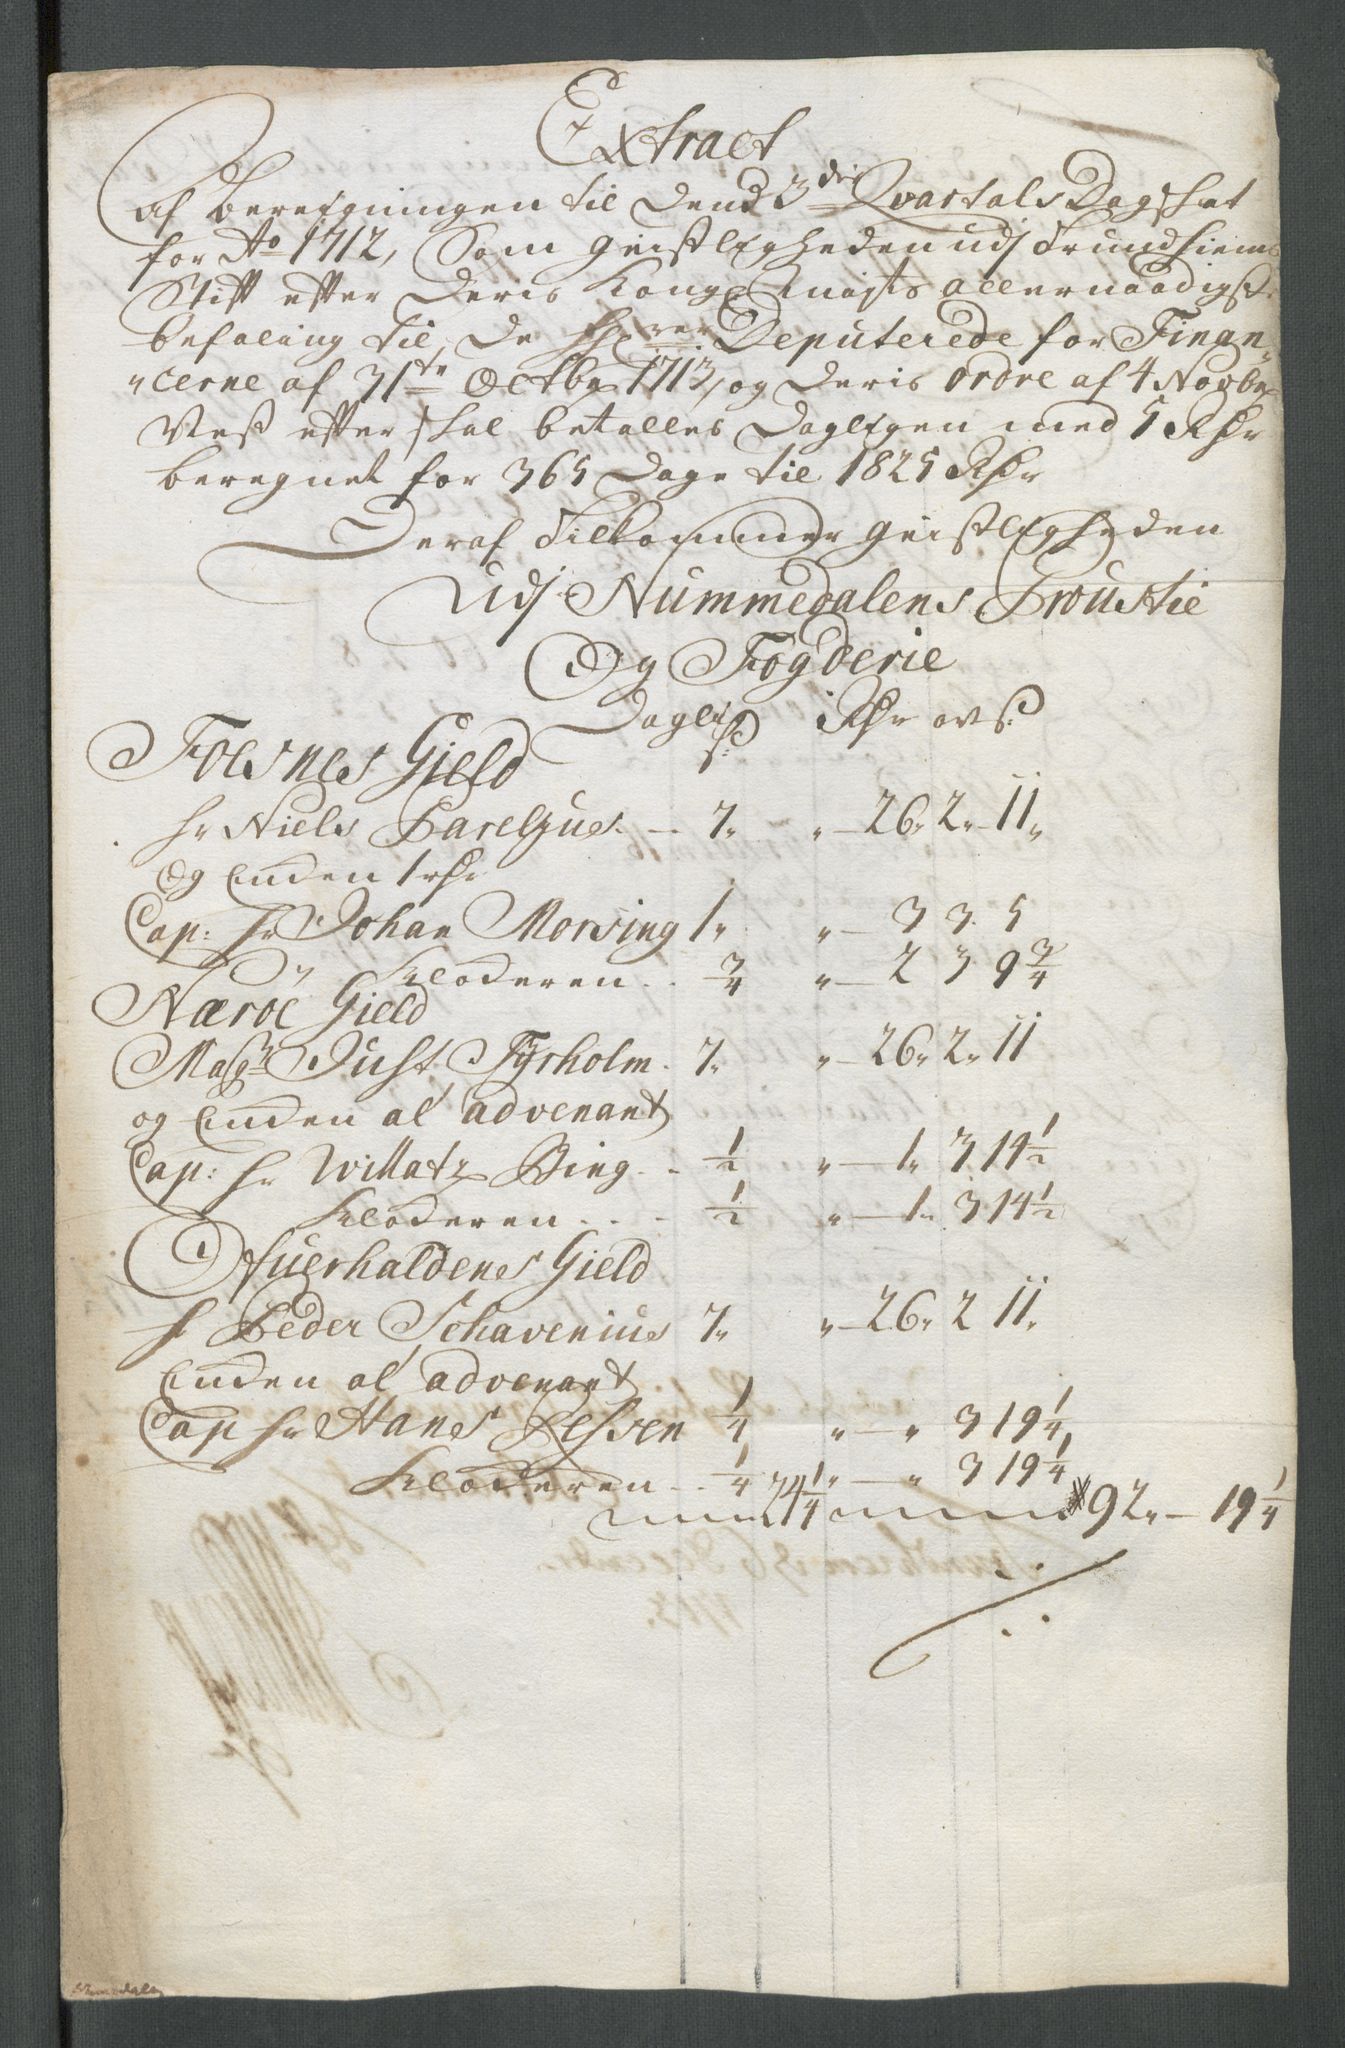 Extract
af beregningen til dend 3die Qvartals Dagskat
for Ao 1712, Som geistligheden udj Trundhiems
Stift efter deris Kongl Mayts allernaadigste
befaling til de HHrer Deputerede for Finan
cerne af 31te Octbr 1713, og deris ordre af 4 Novbr
Nest efter skal betalles Dagligen med 5 Rdr
beregnet for 365 dage til 1825 Rdr
Deraf Tilkommer geistligheden
Udj Nummedalens Proustie
Og Fogderie
Dagl ß: Rdr ort ß:
Foesnes Gield
hr Niels Parelius. — 7„ „—26„ 2„—11„
og Enden 1 rdr
Cap: hr Johan Morsing 1„ „— 3 3 5
Kloderen . . 3/4 „— 2 3 9 3/4
Næröe Gield
Magr Just Tyrholm. 7„ „—26„ 2„ 11
og Enden al advenant
Cap: hr Willatz Bing. - 1/2 „—1„ 3 14 1/2
Kloderen . . . 1/2 „—1„ 3 14 1/2
Ofuerhaldenes Gield
hr Peder Schavenius 7„ „—26„ 2 11„
Enden al advenant
Cap hr Hans Jessen 1/4 „—„ 3 19 1/4
Kloderen . . 1/4 „—„ 3 19 1/4
24 1/4 92„— 19 1/4